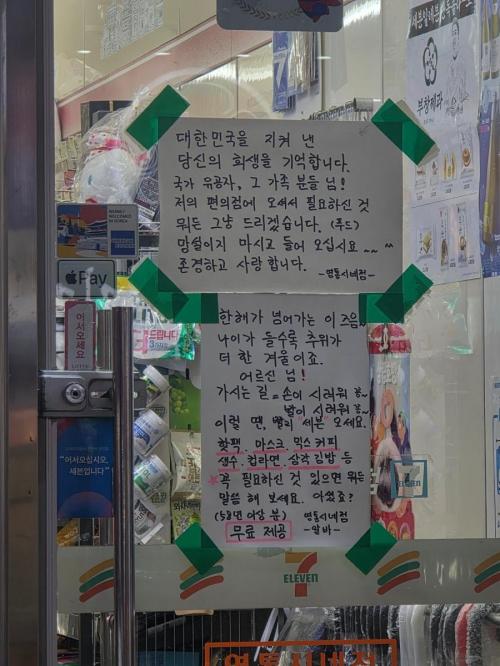 대한민국을 지켜 낸
당신의 희생을 기억합니다.
국가 유공자, 그 가족 분들 님!
저의 편의점에 오셔서 필요하신 것
뭐든 그냥 드리겠습니다. (푸드)
망설이지 마시고 들어 오십시요~~ ^^
존경하고 사랑합니다.
-영통시네점-
한해가 넘어가는 이 즈음,
나이가 들수록 추위가
더 한 겨울이죠.
어르신 님!
가시는 길 = 손이 시려워 꽁~
발이 시려워 꽁~
이럴 땐, 빨리 "세븐" 오세요.
핫팩. 마스크. 믹스커피
생수. 컵라면. 삼각김밥 등
꼭 필요하신 것 있으면 뭐든
말씀 해 보세요. 아셨죠?
영통시네점
-알바-
무료 제공
Pay
어서오세요
"어서오십시오,
세븐입니다"
7
ELEVEN
부창제과
영통시네점